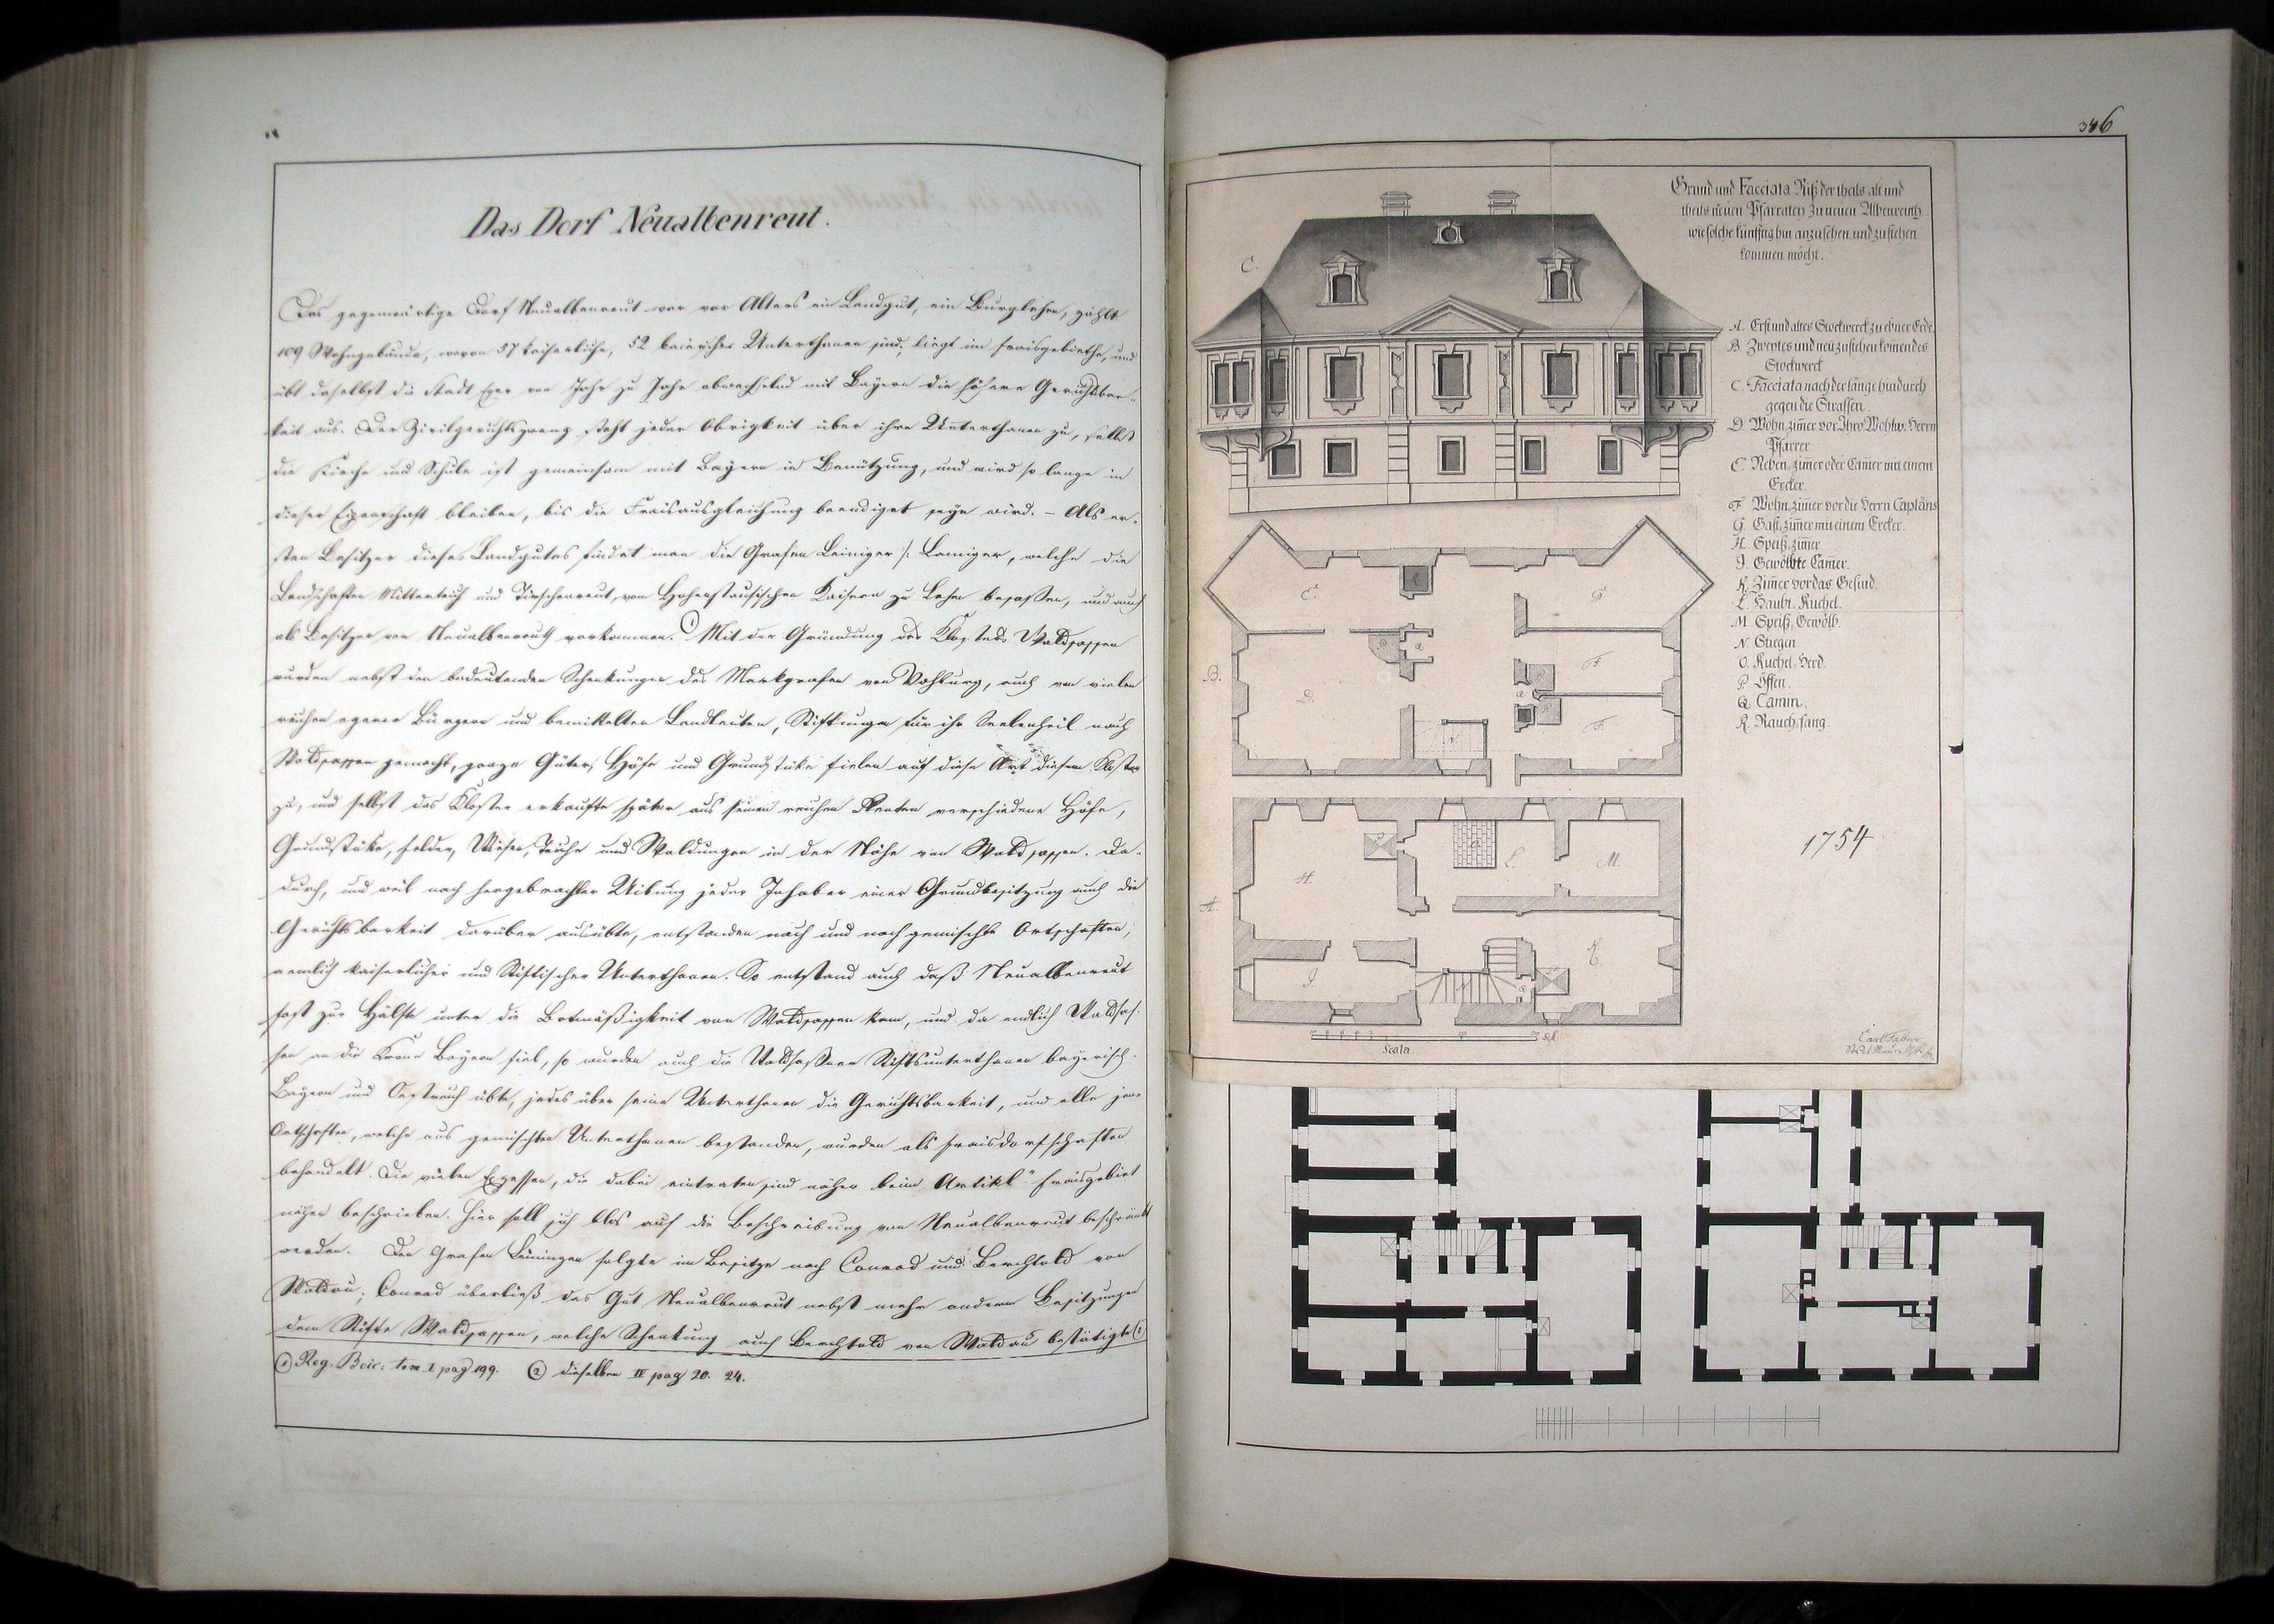 Das Dorf Neualbenreut.
Das gegenwärtige Dorf Neualbenreut war vor Alters ein Landgut, ein Burglehen, zählt
109 Wohngebäude, wovon 57 kaiserliche, 52 bairischer Unterthanen sind, liegt im Fraisgebiethe, und
übt daselbst die Stadt Eger von Jahr zu Jahr abwechselnd mit Bayern die höhere Gerichtsbar-
keit aus. Der Zivilgerichtszwang steht jeder Obrigkeit über ihre Unterthanen zu, selbst
die Kirche und Schule ist gemeinsam mit Bayern in Benützung, und wird so lange in
dieser Eigenschaft bleiben, bis die Fraisausgleichung beendiget seyn wird. – Als er-
sten Besitzer dieses Landgutes findet man die Grafen Leiniger /: Lominger, welche die
Landschaften Mitterteich und Tirschenreut, von Hohenstaufischen Kaisern zu Lehen besaßen, und auch
als Besitzer von Neualbenreuth vorkommen. 1) Mit der Gründung des Klosters Waldsassen
wurden nebst den bedeutenden Schenkungen des Markgrafen von Vohburg, auch von vielen
reichen egerer Bürgern und bemittelten Landleuten, Stiftungen für ihr Seelenheil nach
Waldsassen gemacht, ganze Güter, Höfe und Grundstüke fielen auf diese Art diesem Kloster
zu, und selbst das Kloster erkaufte später aus seinen reichen Renten verschiedene Höfe,
Grundstüke, Felder, Wiesen, Teiche und Waldungen in der Nähe von Waldsassen. Da-
durch, und weil nach hergebrachter Uibung jeder Inhaber einer Grundbesitzung auch die
Gerichtsbarkeit darüber ausübte, entstanden nach und nach gemischte Ortschaften,
nemlich kaiserlicher und Stiftischer Unterthanen. So entstand auch daß Neualbenreut
fast zur Hälfte unter die Botmäßigkeit von Waldsassen kam, und da endlich Waldsas-
sen an die Krone Bayern fiel, so wurden auch die Waldsaßner Stiftsunterthanen bayerisch.
Bayern und Oestreich übte, jedes über seine Unterthanen die Gerichtsbarkeit, und alle jene
Ortschaften, welche aus gemischten Unterthanen bestanden, wurden als Fraisdorfschaften
behandelt. Die vielen Exzessen, die dabei eintraten sind näher beim Artikl "Fraisgebiet
näher beschrieben. Hier soll sich blos auf die Beschreibung von Neualbenreut beschränkt
werden. Den Grafen Leiningen folgte im Besitze nach Conrad und Berchtold von
Waldau; Conrad überließ das Gut Neualbenreut nebst mehr andern Besitzungen
dem Stifte Waldsassen, welche Schenkung auch Berchtold von Waldau bestätigte (2
(1) Reg. Boic: tom I pag 199. (2) dieselben II pag 20. 24.
346
Grund und Facciata Riß der theils alt und
theils neüen Pfarratey zu neuen Albenreuth
wie solche künfftig hin anzusehen und zu stehen
kommen möcht.
A. Erst und altes Stockwerck zu ebner Erde.
B. Zweytes und neu zustehen komendes
Stockwerck
C. Facciata nach der länge hindurch
gegen die Strassen.
D. Wohn zim̄er vor Ihro Wohlw. Herrn
Pfarrer
E. Neben zim̄er oder Cam̄er mit einem
Ercker.
F. Wohn zim̄er vor die Herrn Capläns
G. Gast zim̄er mit einem Ercker.
H. Speiß zim̄er
J. Gewölbte Cam̄er.
K. Zim̄er vor das Gesind.
L. Haubt Kuchel.
M. Speiß Gewölb.
N. Stiegen
O. Kuchel Herd.
P. Öffen.
Q. Camin.
R. Rauch fang.
1754
C.
E.
G.
B.
D.
F.
F.
H.
L.
M.
A.
J.
K.
Scala.